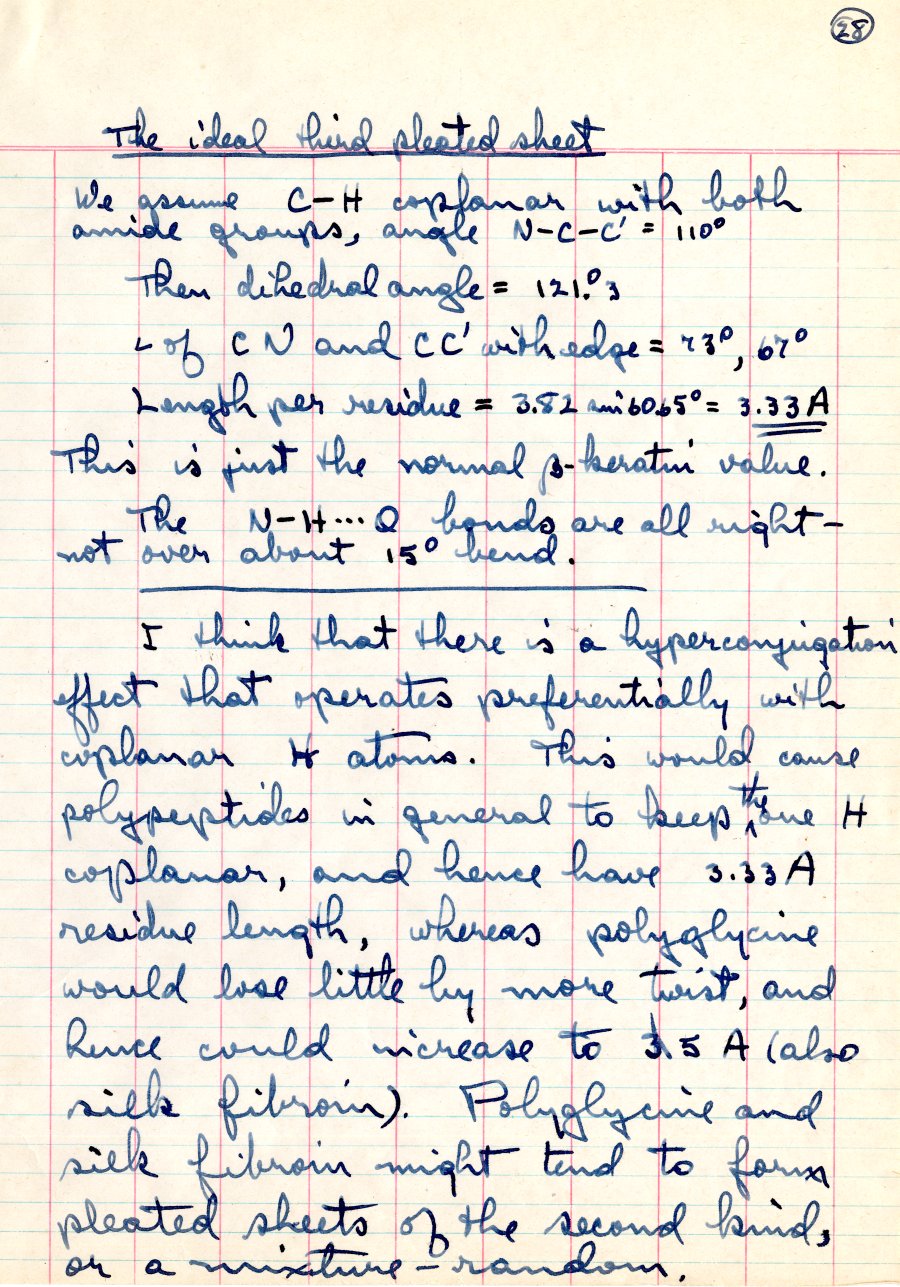 28
The ideal third pleated sheet
We assume C-H coplanar with both
amide groups, angle N-C-C' = 110°
Then dihedral angle = 121.°3
∠ of CN and CC' with edge = 73°, 67°
Length per residue = 3.82 sin 60.65° = 3.33 A
This is just the normal β-keratin value.
The N-H···O bonds are all right-
not over about 15° bend.
I think that there is a hyperconjugation
effect that operates preferentially with
coplanar H atoms. This would cause
polypeptides in general to keep the one H
coplanar, and hence have 3.33 A
residue length, whereas polyglycine
would lose little by more twist, and
hence could increase to 3.5 A (also
silk fibroin). Polyglycine and
silk fibroin might tend to form
pleated sheets of the second kind,
or a mixture - random.